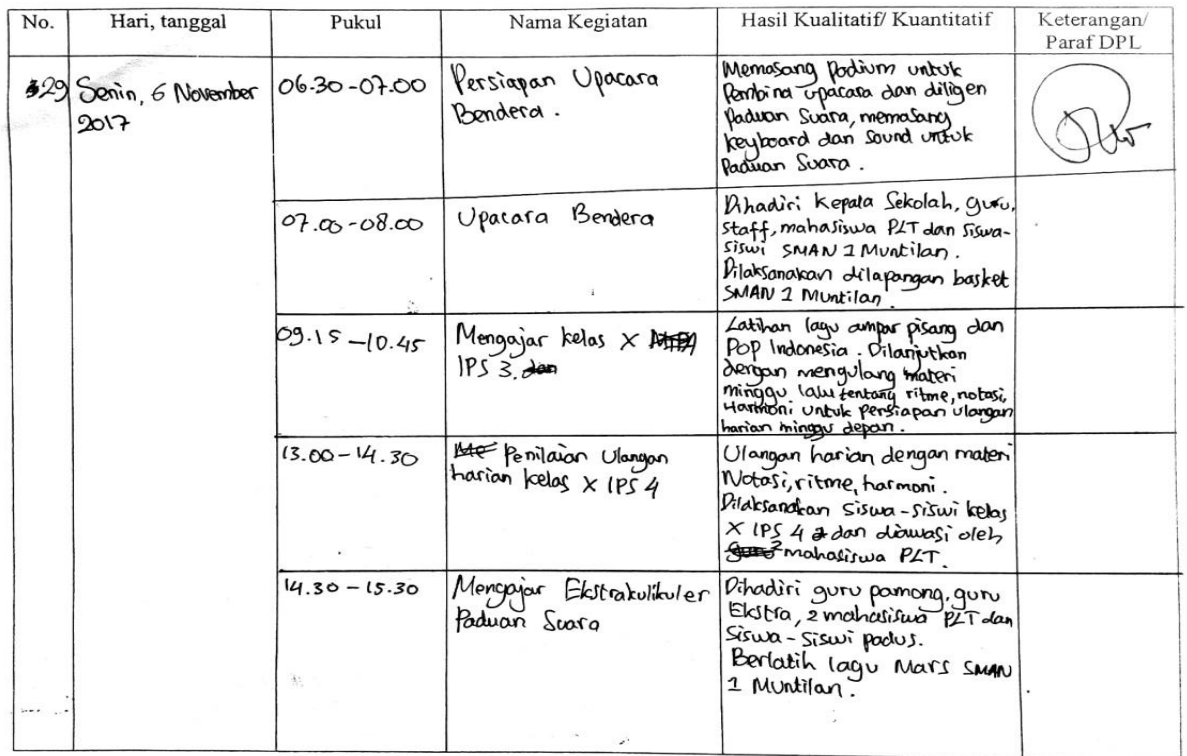 No.
Hari, tanggal
Pukul
Nama Kegiatan
Hasil Kualitatif/ Kuantitatif
Keterangan/
Paraf DPL
29
Senin, 6 November
2017
06.30-07.00
Persiapan Upacara
Bendera.
Memasang Podium untuk
Pembina upacara dan diligen
Paduan Suara, memasang
keyboard dan Sound untuk
Paduan Suara.
07.00-08.00
Upacara Bendera
Dihadiri Kepala Sekolah, guru,
staff, mahasiswa PLT dan siswa-
siswi SMAN 1 Muntilan.
Dilaksanakan dilapangan basket
SMAN 1 Muntilan.
09.15-10.45
Mengajar kelas X
IPS 3.
Latihan lagu ampar pisang dan
Pop Indonesia. Dilanjutkan
dengan mengulang materi
minggu lalu tentang ritme, notasi,
Harmoni untuk persiapan ulangan
harian minggu depan.
13.00-14.30
Penilaian Ulangan
harian kelas X IPS 4
Ulangan harian dengan materi
Notasi, ritme, harmoni.
Dilaksanakan siswa-siswi kelas
X IPS 4 dan diawasi oleh
2 mahasiswa PLT.
14.30-15.30
Mengajar Ekstrakulikuler
Paduan Suara
Dihadiri guru pamong, guru
Ekstra, 2 mahasiswa PLT dan
Siswa-Siswi padus.
Berlatih lagu Mars SMAN
1 Muntilan.